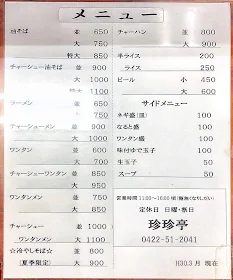 メニュー
油そば 並 650
大 750
特大 850
チャーシュー油そば 並 900
大 1000
特大 1100
ラーメン 並 650
大 750
チャーシューメン 並 900
大 1000
ワンタン 並 600
大 700
チャーシューワンタン 並 850
大 950
ワンタンメン 並 750
大 850
チャーシュー 並 1000
ワンタンメン 大 1100
☆冷やしそば☆ 並 800
(夏季限定) 大 900
チャーハン 並 800
大 900
半ライス 200
ライス 250
ビール 小 450
大 600
サイドメニュー
ネギ盛(皿) 100
なると盛 100
ワンタン盛 100
味付ゆで玉子 100
生玉子 50
スープ 50
営業時間 11:00～16:00頃
定休日 日曜・祭日
珍珍亭
0422-51-2041
H30.3月 現在